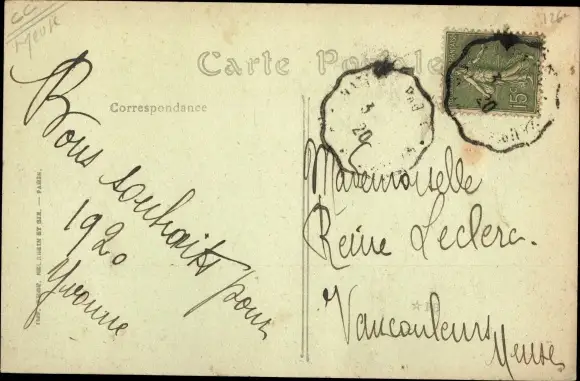 CC
Meuse
126
Carte Postale
Correspondance
Bons souhaits pour
1920
Yvonne
Mademoiselle
Reine Leclerc.
Vaucouleurs
Meuse
15c
3
20
20
PARIS